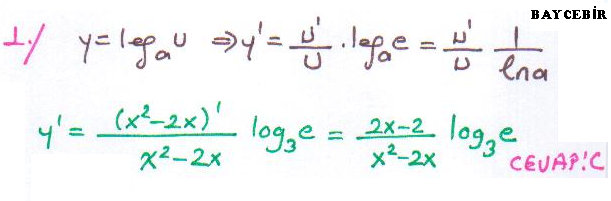 BAYCEBİR
1-/ y = logₐu ⇒ y' = u'/u . logₐe = u'/u 1/lna
y' = (x²-2x)'/x²-2x log₃e = 2x-2/x²-2x log₃e
CEVAP:C